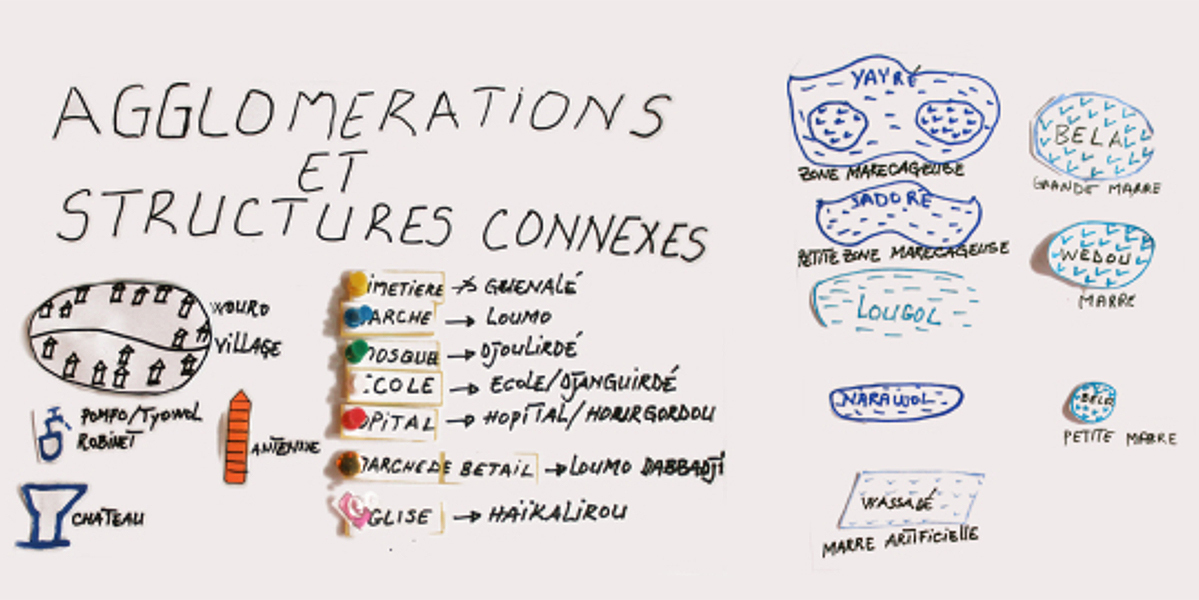 AGGLOMERATIONS
ET
STRUCTURES CONNEXES
WOURO
VILLAGE
POMPO/TYOWOL
ROBINET
ANTENNE
CHATEAU
IMETIERE → GUENALÉ
ARCHE → LOUMO
MOSQUE → DJOULIRDÉ
ECOLE → ECOLE/DJANGUIRDÉ
OPITAL → HOPITAL/
ARCHE DE BETAIL → LOUMO DABBADJI
GLISE → HAÏKALIROU
YAYRÉ
ZONE MARECAGEUSE
SADORÉ
PETITE ZONE MARECAGEUSE
LOUGOL
NARAWOL
WASSADÉ
MARRE ARTIFICIELLE
BELA
GRANDE MARRE
WEDOU
MARRE
BELA
PETITE MARRE